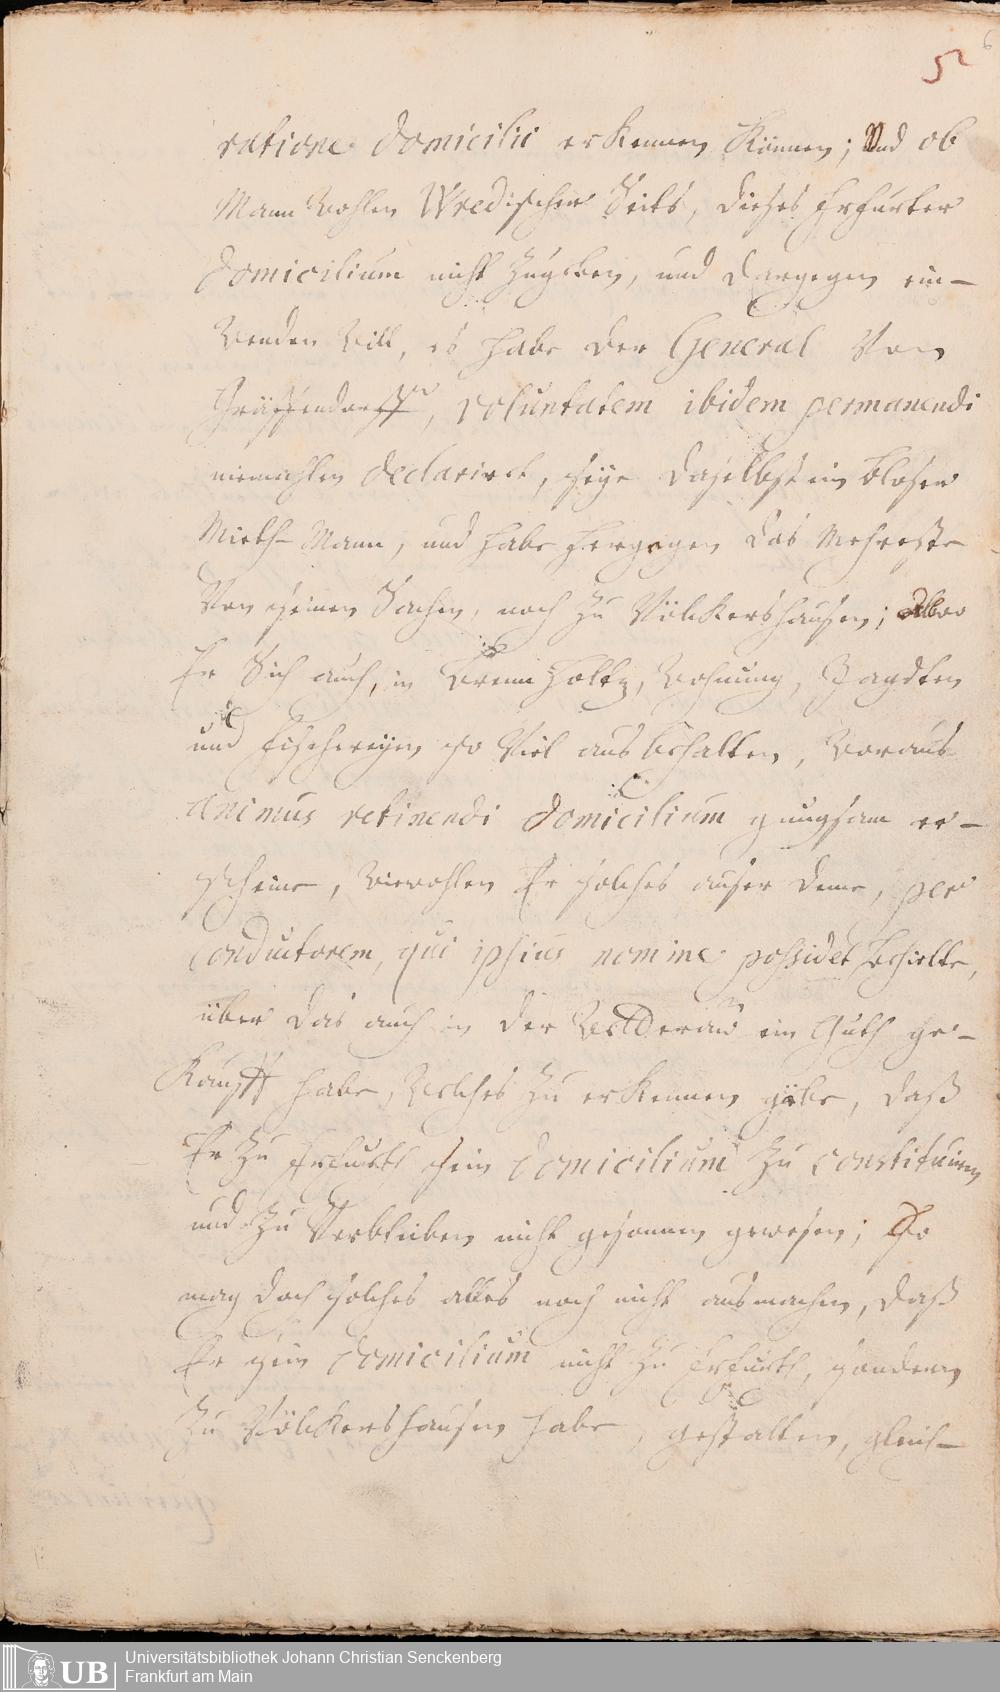 6
5
ratione domicilii erkennen können; Und ob
Mann Wohlen Wredischer Seits, dieses Erfurter
domicilium nicht zugeben, und dargegen ein-
Wenden Will, es habe der General Von
Gräffendorff, voluntatem ibidem permanendi
niemahlen declarirt, seye daselbst ein bloser
Mieth-Mann, und habe hergegen das Mehreste
Von seinen Sachen, noch zu Völckershausen; Allwo
Er Sich auch, in Brennholtz, Wohnung, Jagdten
und Fischereyen so Viel ausbehalten, Woraus
animus retinendi domicilium gnugsam er-
scheine, Wiewohlen Er solches auser deme, per
conductorem, qui ipsius nomine possidet behielte,
über das auch in der Wetterau ein Guth ge-
Kaufft habe, Welches zu erkennen gäbe, daß
Er zu Erfurth sein domicilium zu constituiren
und zu Verbleiben nicht gesonnen gewesen; So
mag doch solches alles noch nicht ausmachen, daß
Er sein domicilium nicht zu Erfurth, sondern
zu Völckershausen habe, gestalten, gleich-
UB
Universitätsbibliothek Johann Christian Senckenberg
Frankfurt am Main